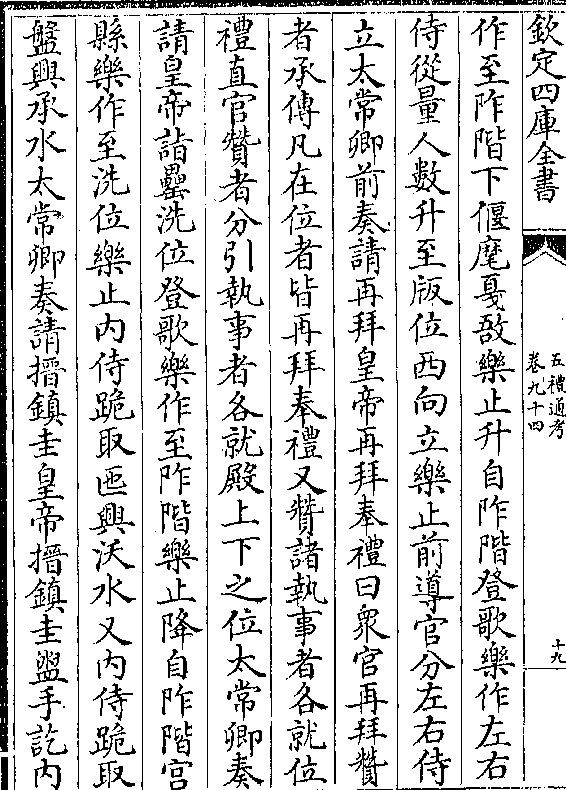 欽定四庫全書
五禮通考
卷九十四
十九
作至阼階下偃麾戛敔樂止升自阼階登歌樂作左右
侍從量人數升至版位西向立樂止前導官分左右侍
立太常卿前奏請再拜皇帝再拜奉禮曰衆官再拜贊
者承傳凡在位者皆再拜奉禮又贊諸執事者各就位
禮直官贊者分引執事者各就殿上下之位太常卿奏
請皇帝詣罍洗位登歌樂作至阼階樂止降自阼階宫
縣樂作至洗位樂止内侍跪取匜興沃水又内侍跪取
盤興承水太常卿奏請搢鎮圭皇帝搢鎮圭盥手訖内